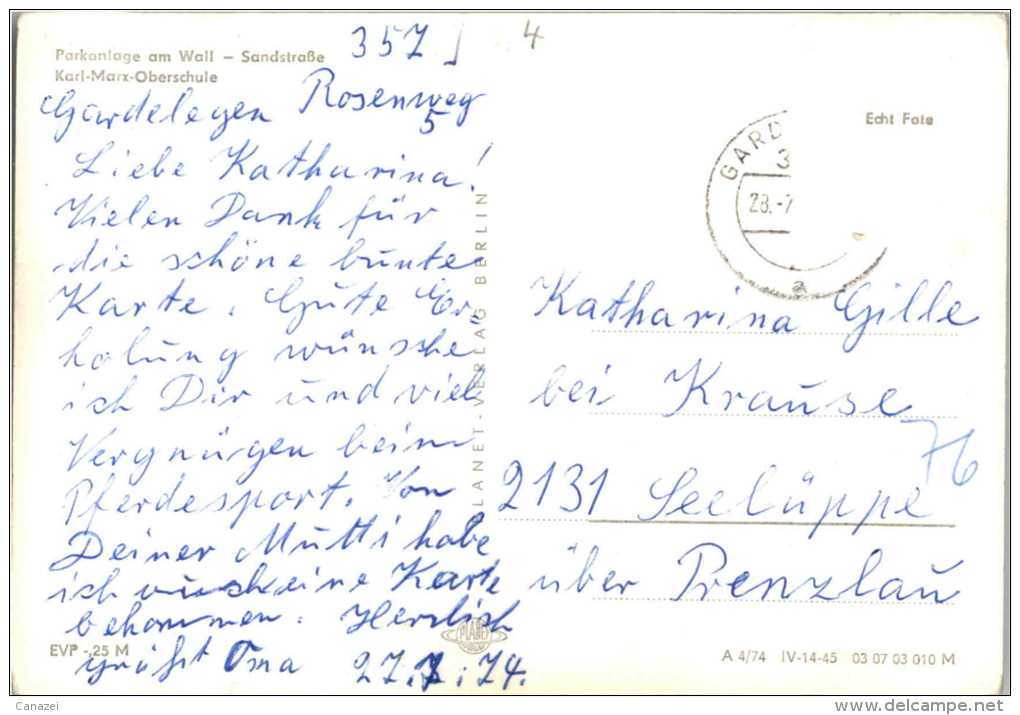 357]
4
Parkanlage am Wall – Sandstraße
Karl-Marx-Oberschule
Gardelegen Rosenweg
5
Liebe Katharina!
Vielen Dank für
die schöne bunte
Karte. Gute Er-
holung wünsche
ich Dir und viel
Vergnügen beim
Pferdesport. Von
Deiner Mutti habe
ich auch eine Karte
bekommen. Herzlich
grüßt Oma 27.7.74.
EVP -,25 M
PLANET-VERLAG BERLIN
PLANET
Echt Foto
GARD
3
28.-7
a
Katharina Gille
bei Krause
76
2131 Seelüppe
über Prenzlau
A 4/74 IV-14-45 03 07 03 010 M
Canazei
www.delcampe.net